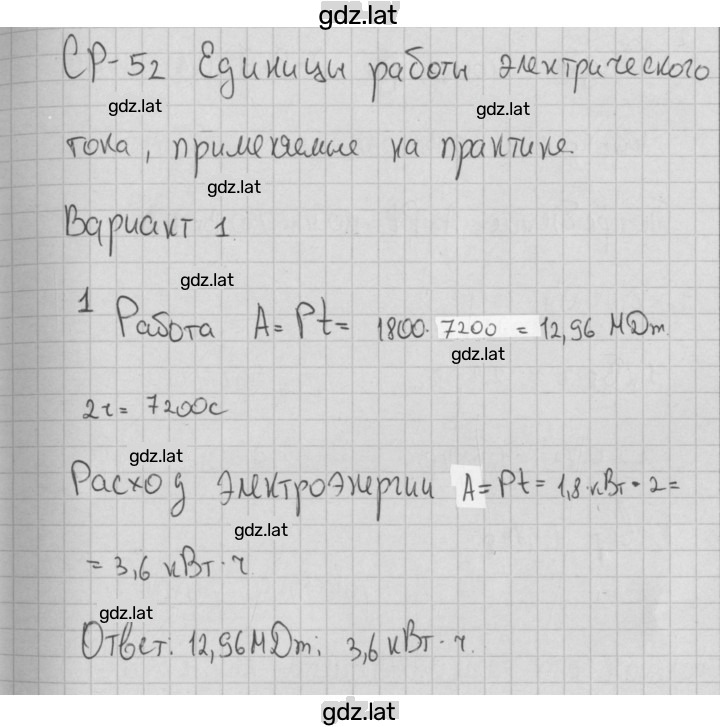 gdz.lat
СР-52 Единицы работы электрического
gdz.lat
gdz.lat
тока, применяемые на практике.
gdz.lat
Вариант 1
gdz.lat
1 Работа A = Pt = 1800 · 7200 = 12,96 МДж.
gdz.lat
2ч = 7200с
gdz.lat
Расход электроэнергии A = Pt = 1,8 кВт · 2 =
gdz.lat
= 3,6 кВт · ч
gdz.lat
Ответ: 12,96 МДж; 3,6 кВт · ч.
gdz.lat